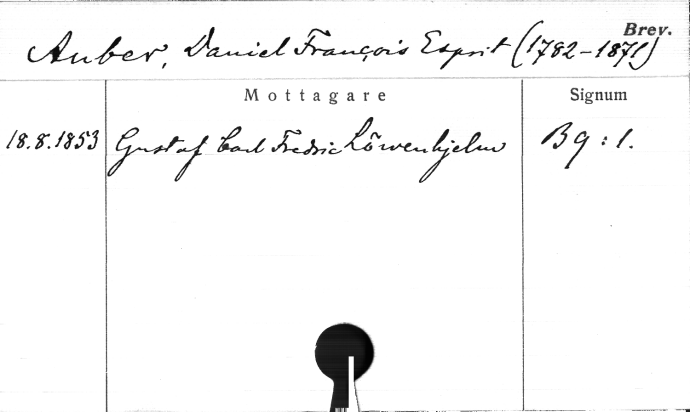 Brev.
Auber, Daniel François Esprit (1782-1871)
Mottagare Signum
18.8.1853 Gustaf Carl Fredric Löwenhjelm B9:1.